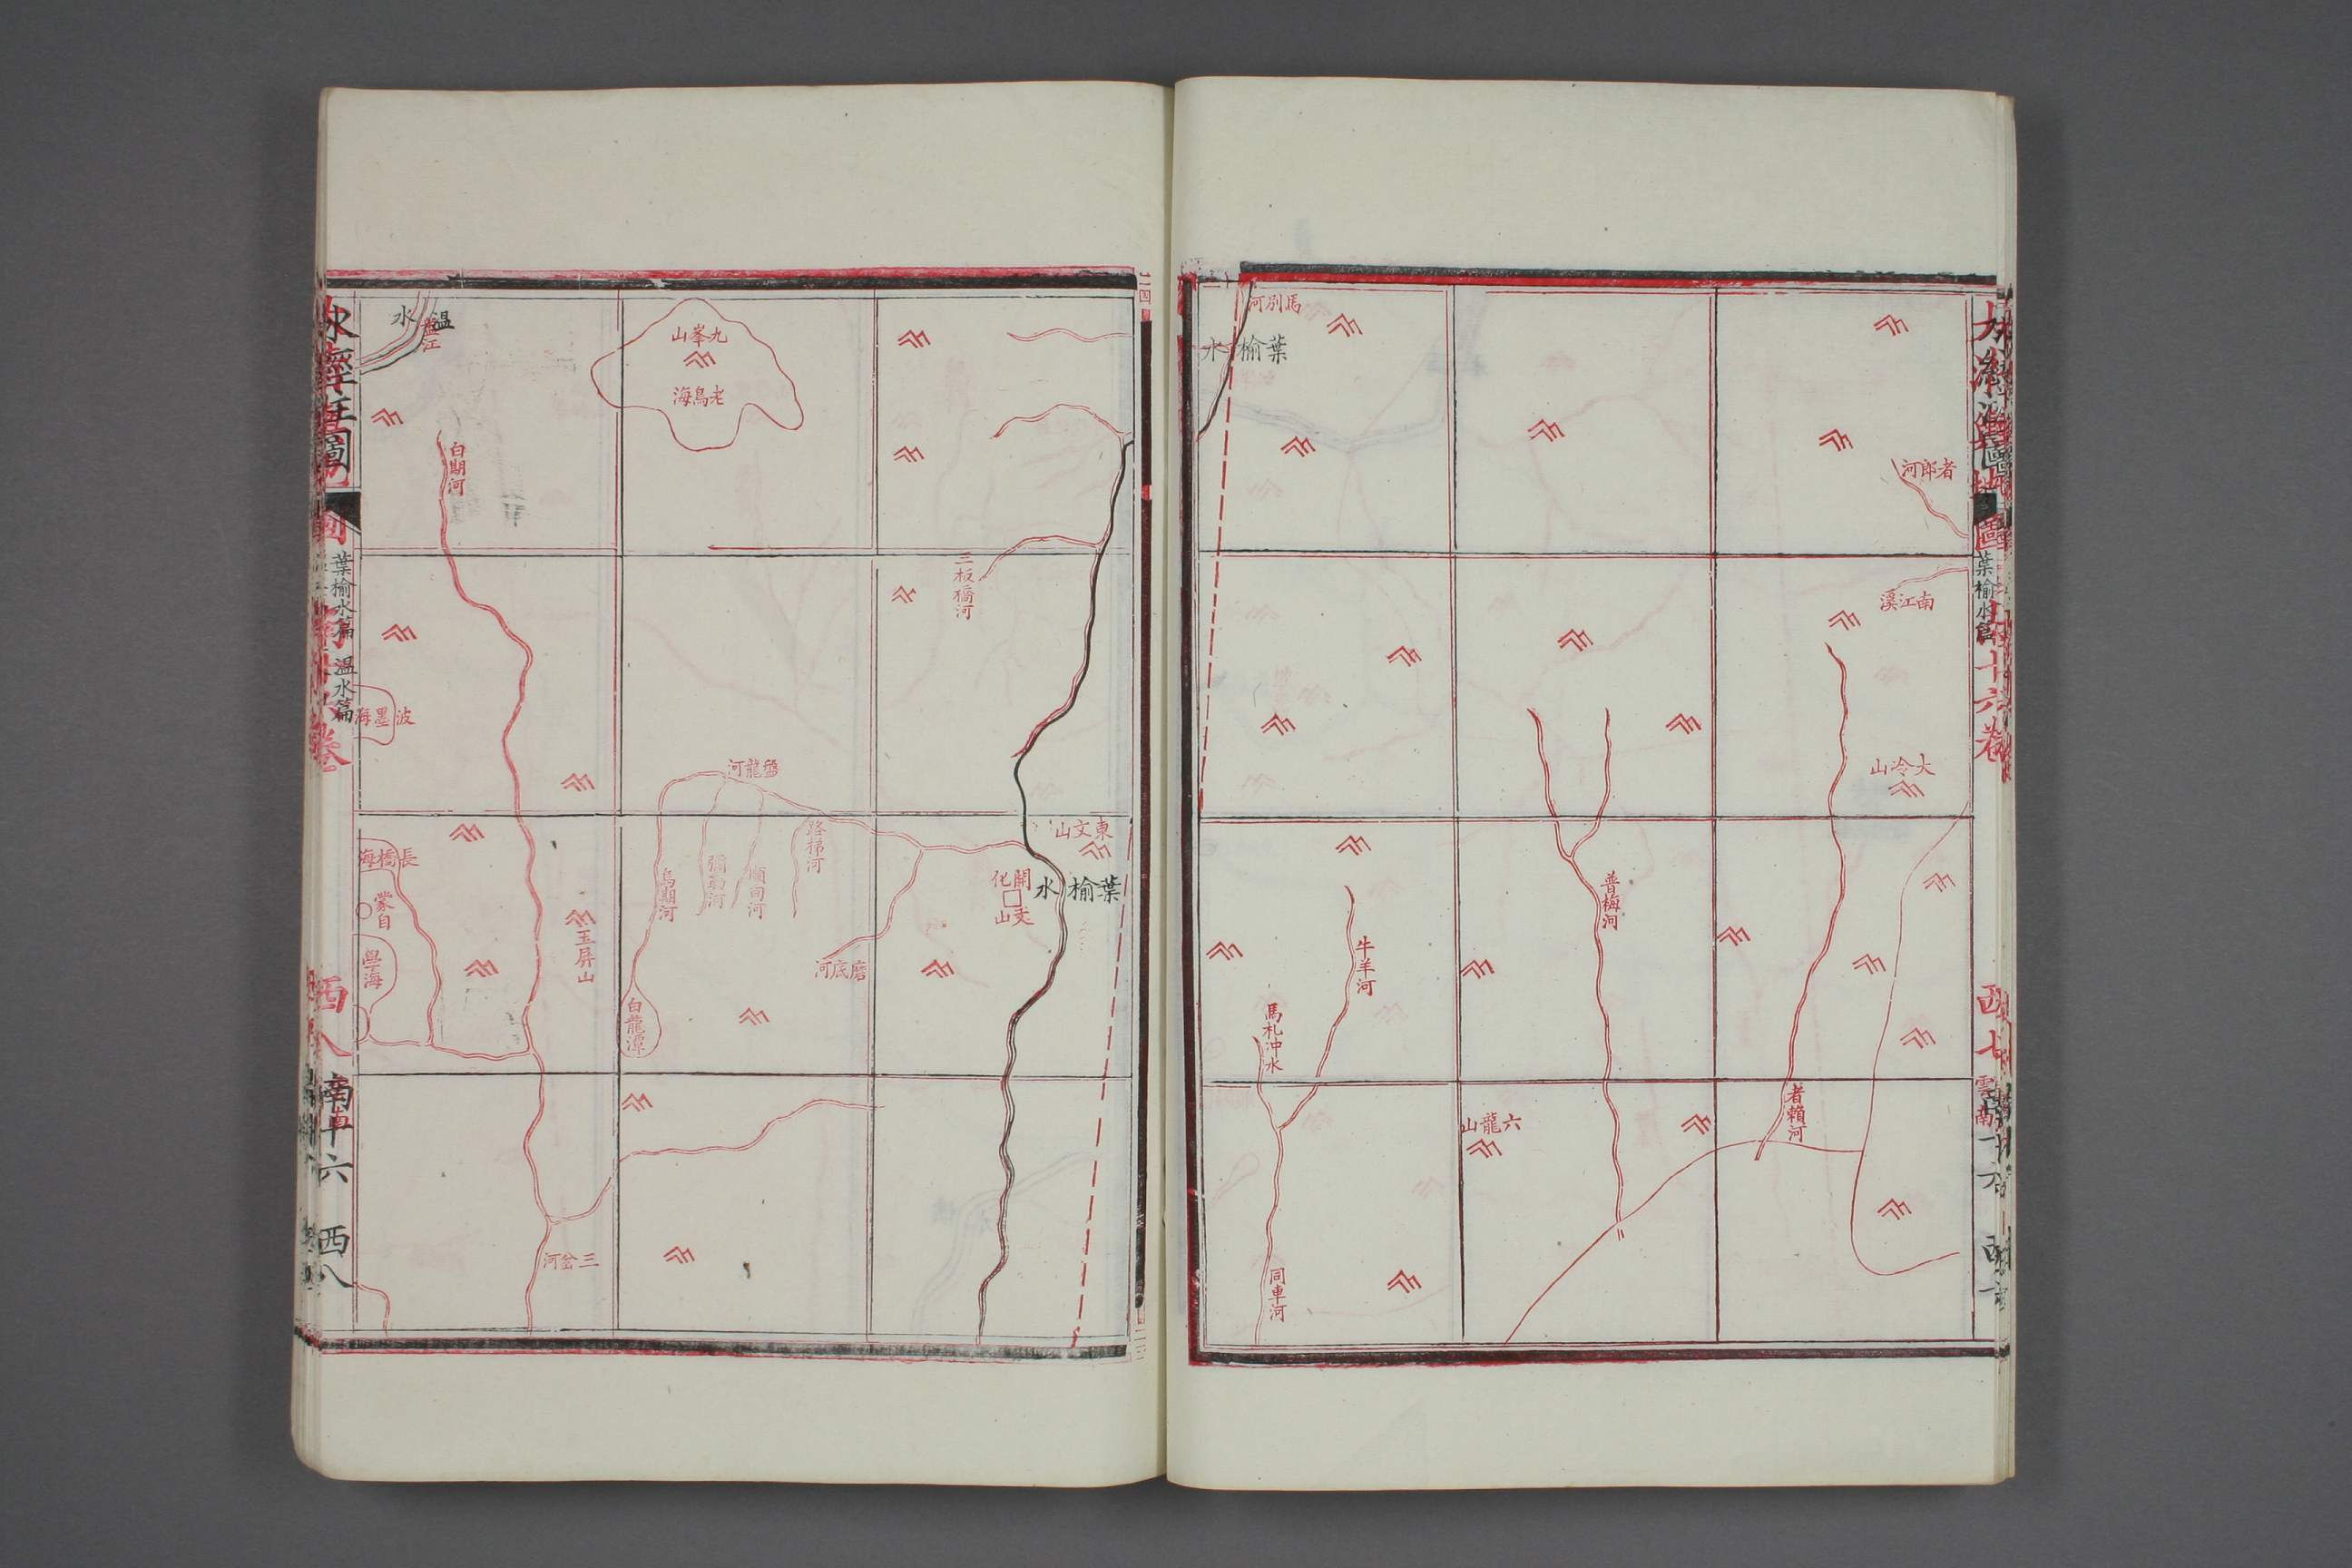 馬別河
葉榆水
者郎河
南江溪
大冷山
普梅河
牛羊河
馬札沖水
者賴河
六龍山
同車河
葉榆水篇
雲南
溫水
盤江
九峯山
老鳥海
白期河
三板橋河
波墨海
盤龍河
東文山
路梯河
長橋海
彌勒河
順甸河
烏期河
開化
文山
葉榆水
蒙自
玉屏山
學海
磨底河
白龍潭
三岔河
水經注圖
葉榆水篇 溫水篇
南六 西八